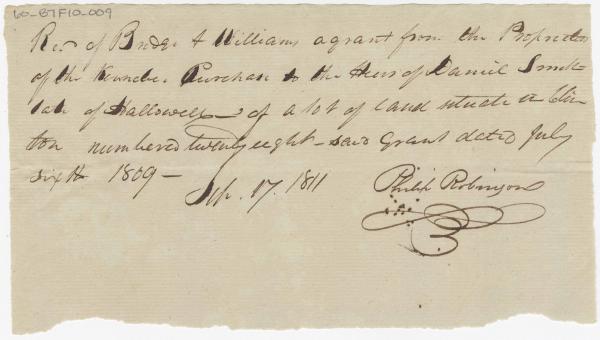 60-BTF10-009
Rec. of Bridge & Williams a grant from the Proprietors
of the Kennebec Purchase to the Heirs of Daniel Smith
late of Hallowell – of a lot of land situate in Clin-
ton numbered twenty eight – said Grant dated July
sixth 1809 –
Sep. 17. 1811
Philip Robinson